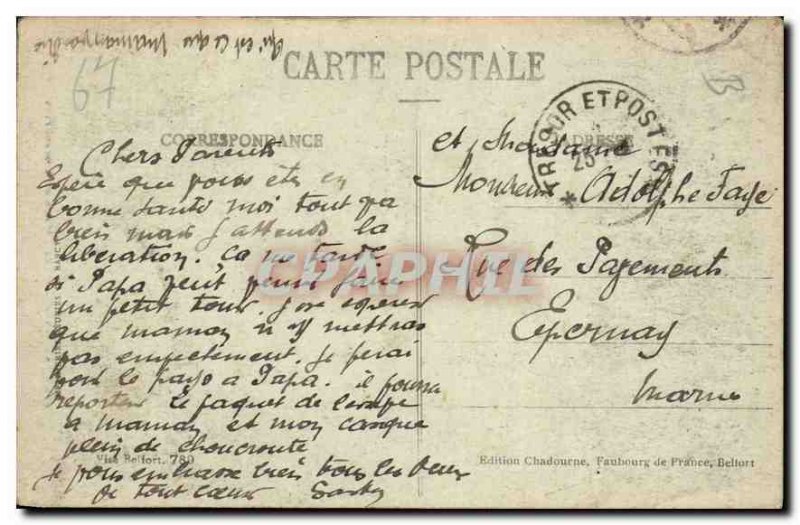 qu'est ce que maman pas
67
CARTE POSTALE
B
TRESOR ET POSTES
25
CORRESPONDANCE
ADRESSE
Chers Parents
Espère que vous êtes en
bonne santé moi tout va
bien mais j'attends la
libération. Ca me tarde
si Papa veut venir faire
un petit tour. J'ose esperer
que maman n'y mettras
pas empechement. Je ferai
voir le pays a Papa. il pourra
reporter le paquet de
a maman et mon casque
plein de choucroute
Je vous embrasse bien tous les deux
de tout cœur
et Madame
Monsieur Adolphe Faye
Rue des Pagements
Epernay
Marne
CPAPHIL
Visé Belfort. 780
Edition Chadourne, Faubourg de France, Belfort